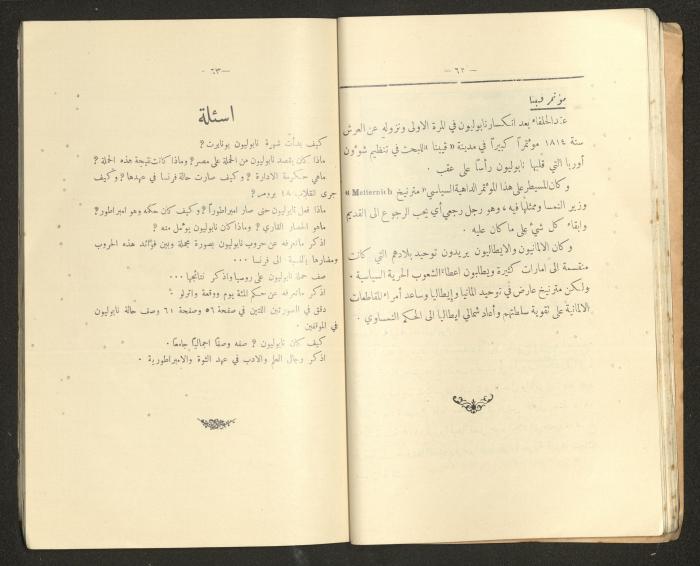 — ٦٢ —
مؤتمر فيينا
عقد الحلفاء بعد انكسار نابوليون في المرة الاولى ونزوله عن العرش
سنة ١٨١٤ مؤتمراً كبيراً في مدينة « فيينا » للبحث في تنظيم شؤون
أوربا التي قلبها نابوليون رأساً على عقب .
وكان المسيطر على هذا المؤتمر الداهية السياسي « مترنيخ Metternich »
وزير النمسا وممثلها فيه ، وهو رجل رجعي أي يحب الرجوع الى القديم
وابقاء كل شيء على ما كان عليه .
وكان الالمانيون والايطاليون يريدون توحيد بلادهم التي كانت
منقسمة الى امارات كثيرة ويطلبون اعطاء الشعوب الحرية السياسية .
ولكن مترنيخ عارض في توحيد المانيا وإيطاليا وساعد أمراء المقاطعات
الالمانية على تقوية سلطتهم وأعاد شمالي ايطاليا الى الحكم النمساوي .
— ٦٣ —
اسئلة
كيف بدأت شهرة نابوليون بونابرت ؟
ماذا كان يقصد نابوليون من الحملة على مصر ؟ وماذا كانت نتيجة هذه الحملة ؟
ماهي حكومة الادارة ؟ وكيف صارت حالة فرنسا في عهدها ؟ وكيف
جرى انقلاب ١٨ برومر ؟
ماذا فعل نابوليون حتى صار امبراطوراً ؟ وكيف كان حكمه وهو امبراطور ؟
ماهو الحصار القاري ؟ وماذا كان نابوليون يؤمل منه ؟
اذكر ماتعرفه عن حروب نابوليون بصورة مجملة وبين فوائد هذه الحروب
ومضارها بالنسبة الى فرنسا ...
صف حملة نابوليون على روسيا واذكر نتائجها ...
اذكر ماتعرفه عن حكم المئة يوم ووقعة واترلو .
دقق في الصورتين اللتين في صفحة ٥٦ وصفحة ٦١ وصف حالة نابوليون
في الموقفين .
كيف كان نابوليون ؟ صفه وصفاً اجمالياً جامعاً .
اذكر رجال العلم والادب في عهد الثورة والامبراطورية .